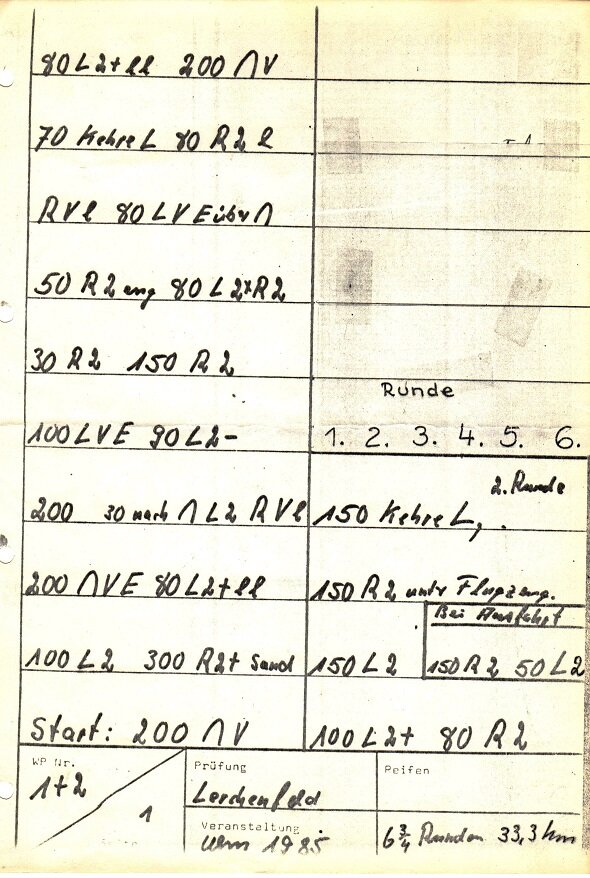 80 L2+ ll 200 ∩ V
70 Kehre L 80 R2 l
R V l 80 L V E über ∩
50 R2 eng 80 L2 x R2
30 R2 150 R2
Runde
100 L V E 90 L2-
1. 2. 3. 4. 5. 6.
2. Runde
200 30 nach ∩ L2 R V l
150 Kehre L, .
200 ∩ V E 80 L2+ ll
150 R2 unter Flugzeug.
Bei Ausfahrt
100 L2 300 R2+ Sand
150 L2
150 R2 50 L2
Start: 200 ∩ V
100 L2+ 80 R2
WP Nr.
1+2
1
Prüfung
Lerchenfeld
Peifen
Veranstaltung
Ulm 1985
6 3/4 Runden 33,3 km